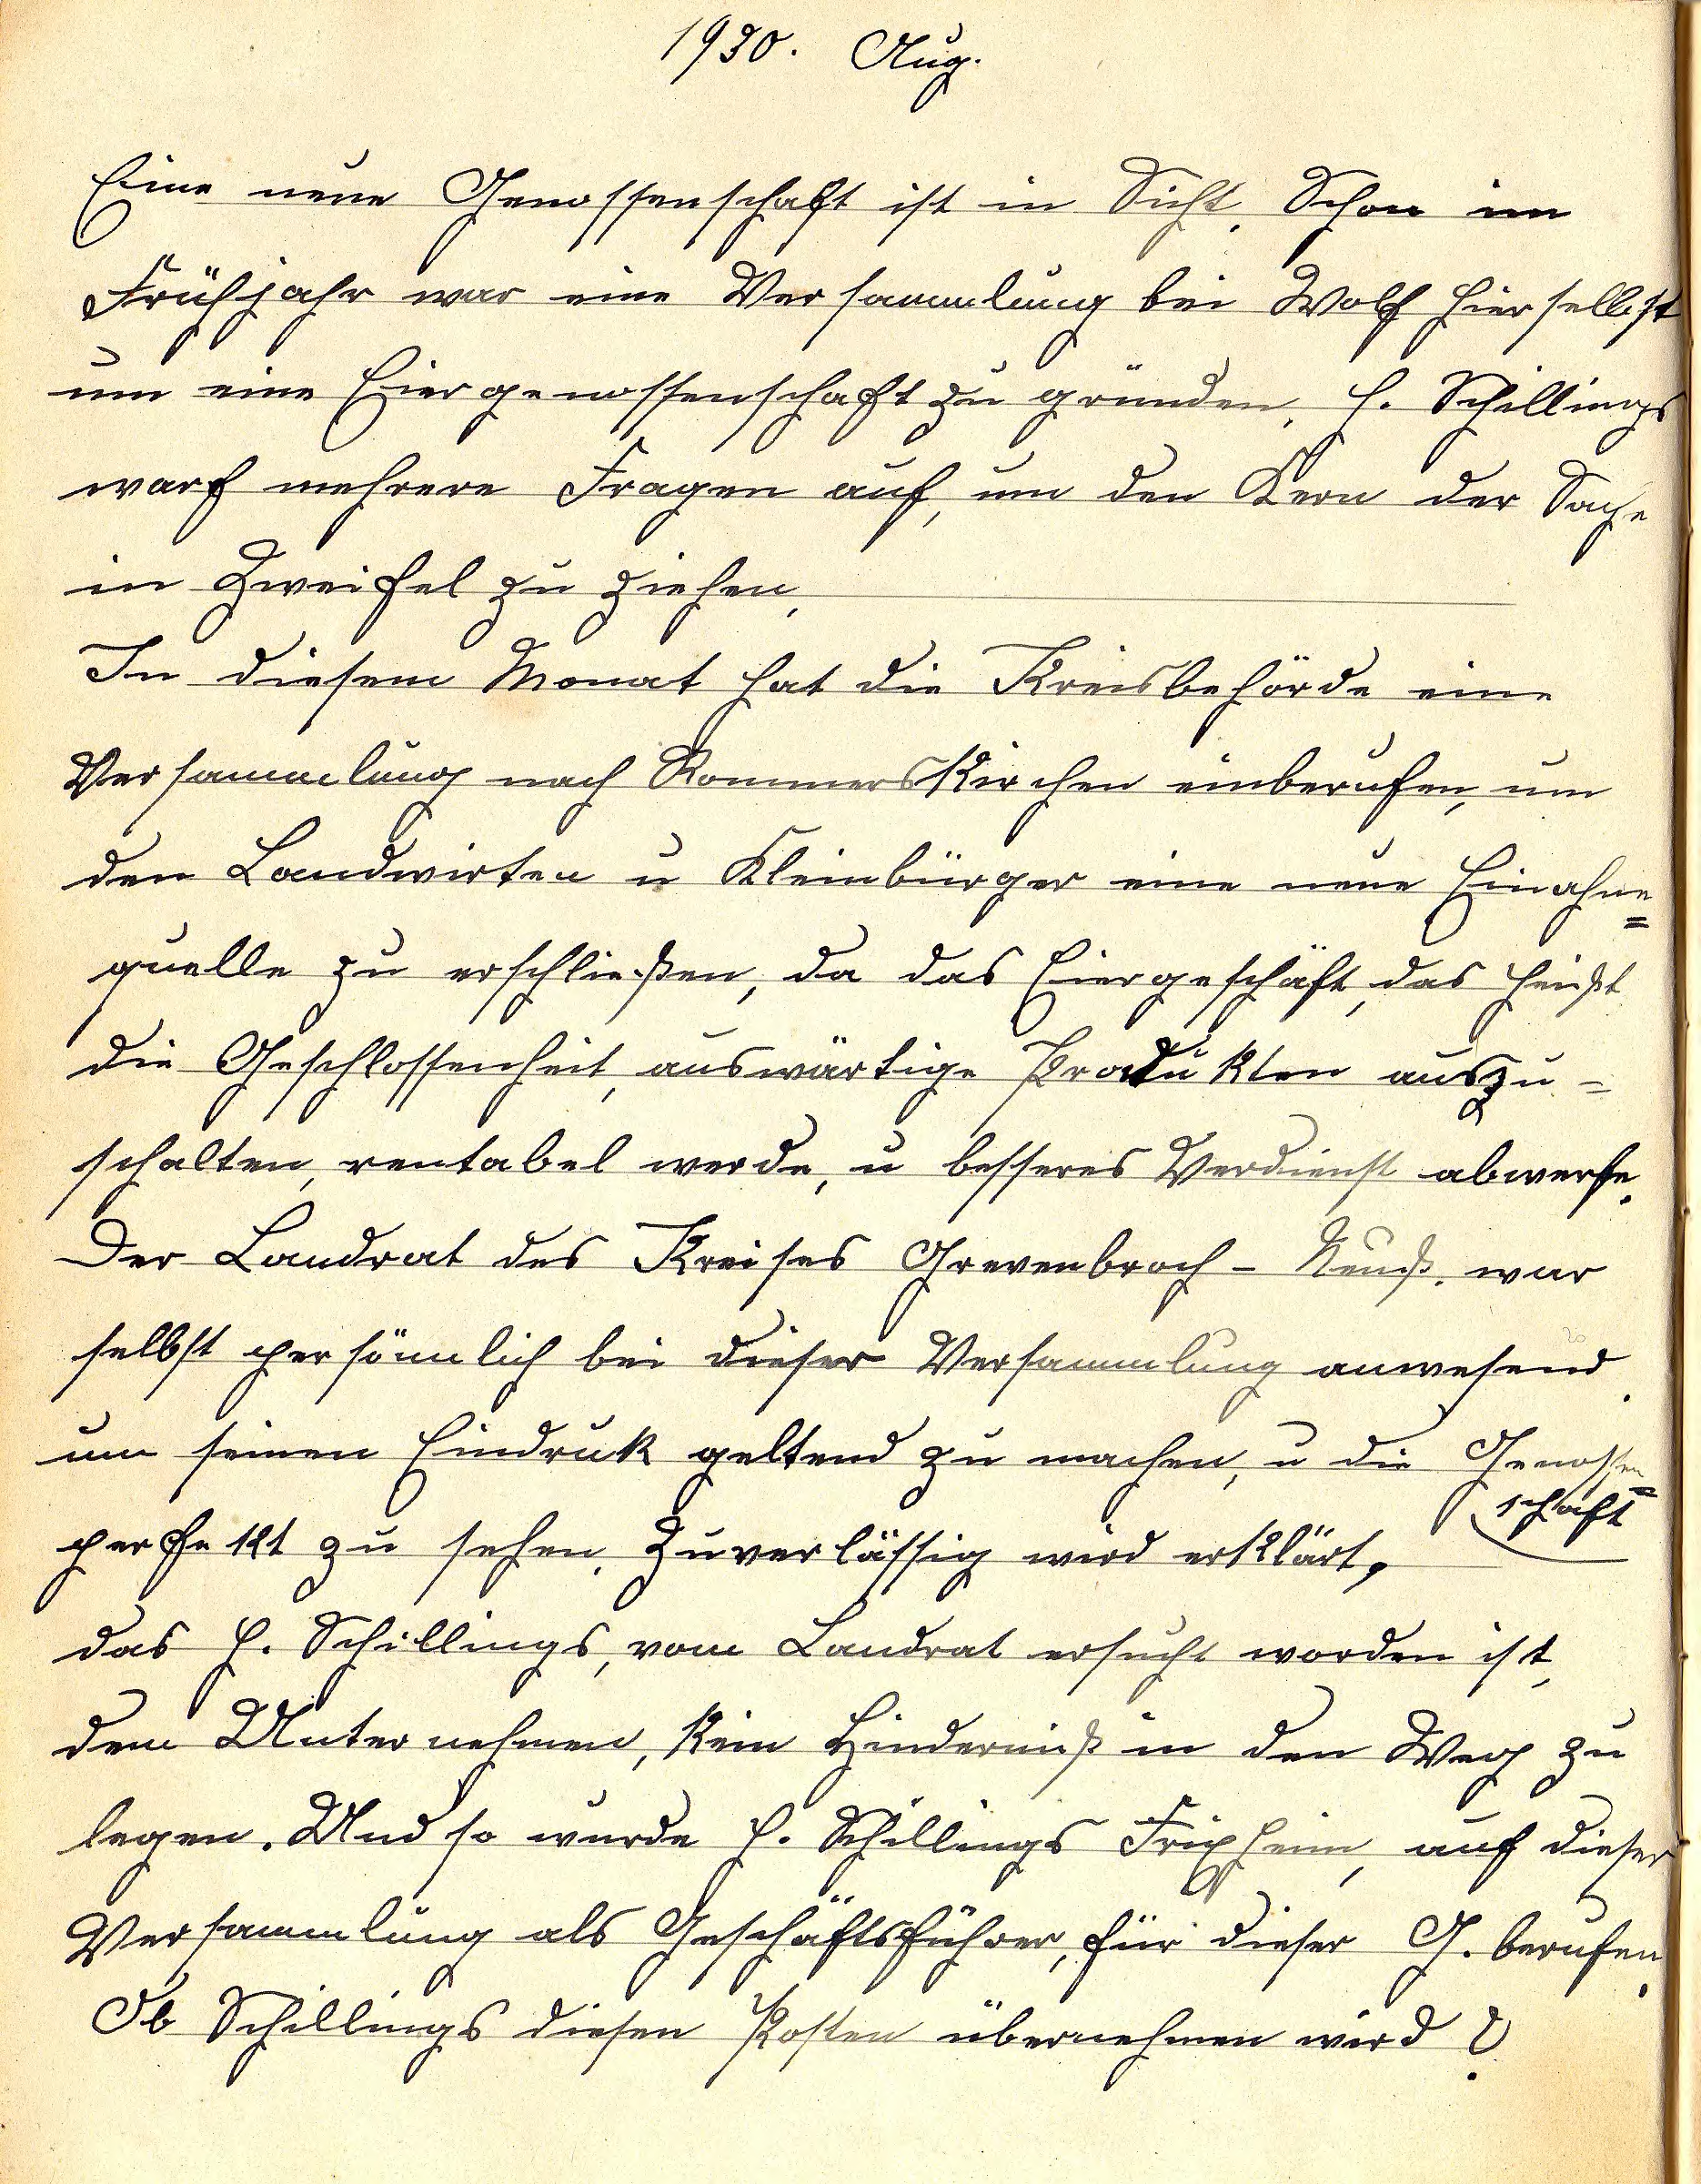 1930. Aug.
Eine neue Genossenschaft ist in Sicht. Schon im
Frühjahr war eine Versammlung bei Wolf hierselbst
um eine Eiergenossenschaft zu gründen. H. Schillings
warf mehrere Fragen auf, um den Kern der Sache
in Zweifel zu ziehen.
In diesem Monat hat die Kreisbehörde eine
Versammlung nach Rommerskirchen einberufen, um
den Landwirten u Kleinbürger eine neue Einahme=
quelle zu erschließen, da das Eiergeschäft, das heißt
die Geschlossenheit, auswärtige Produkten auszu=
schalten, rentabel werde, u besseres Verdienst abwerfe.
Der Landrat des Kreises Grevenbroch - Neuß. war
selbst persönnlich bei dieser Versammlung anwesend.
um seinen Eindruk geltend zu machen, u die Genossen=
schaft
perfekt zu sehen. Zuverlässig wird erklärt,
das H. Schillings, vom Landrat ersucht worden ist,
dem Unternehmen, kein Hinderniß in den Weg zu
legen. Und so wurde H. Schillings Frixheim, auf dieser
Versammlung als Geschäftsführer, für dieser G. berufen.
Ob Schillings diesen Posten übernehmen wird ?